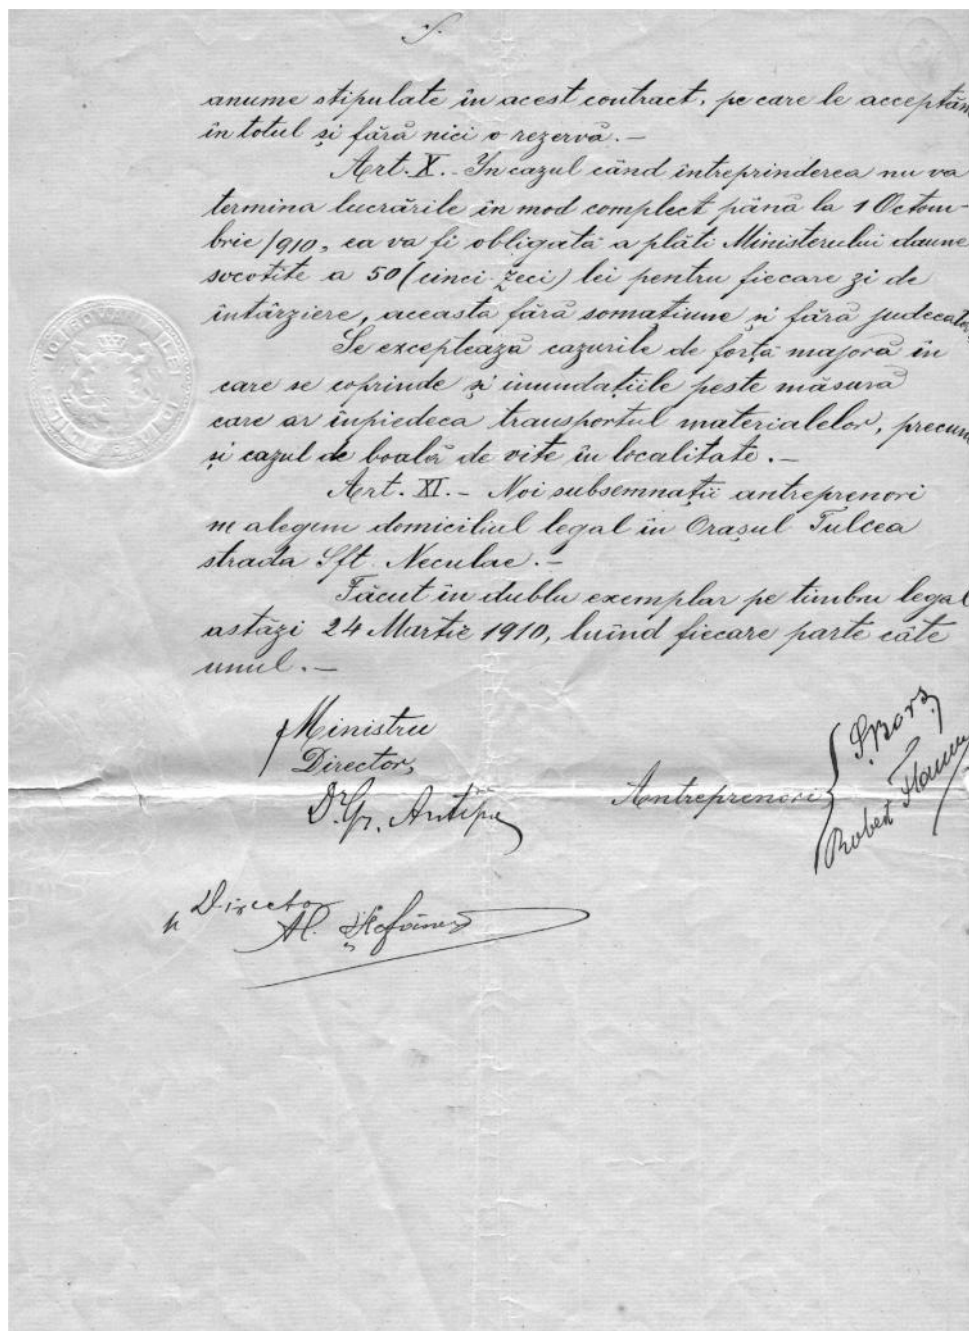 5.
anume stipulate în acest contract, pe care le acceptăm
în totul și fără nici o rezervă. –
Art. X. – In cazul când întreprinderea nu va
termina lucrările în mod complect până la 1 Octom-
brie 1910, ea va fi obligată a plăti Ministerului daune
socotite a 50 (cinci-zeci) lei pentru fiecare zi de
întârziere, aceasta fără somațiune și fără judecată
Se exceptează cazurile de forță majoră în
care se coprinde și inundațiile peste măsură
care ar înpiedeca transportul materialelor, precum
și cazul de boală de vite în localitate. –
Art. XI. – Noi subsemnații antreprenori
ne alegem domiciliul legal în Orașul Tulcea
strada Sft. Neculae. –
Făcut în dublu exemplar pe timbru legal
astăzi 24 Martie 1910, luînd fiecare parte câte
unul. –
Ministru
Director,
Dr. Gr. Antipa
Antreprenori
Robert
Director
Al.